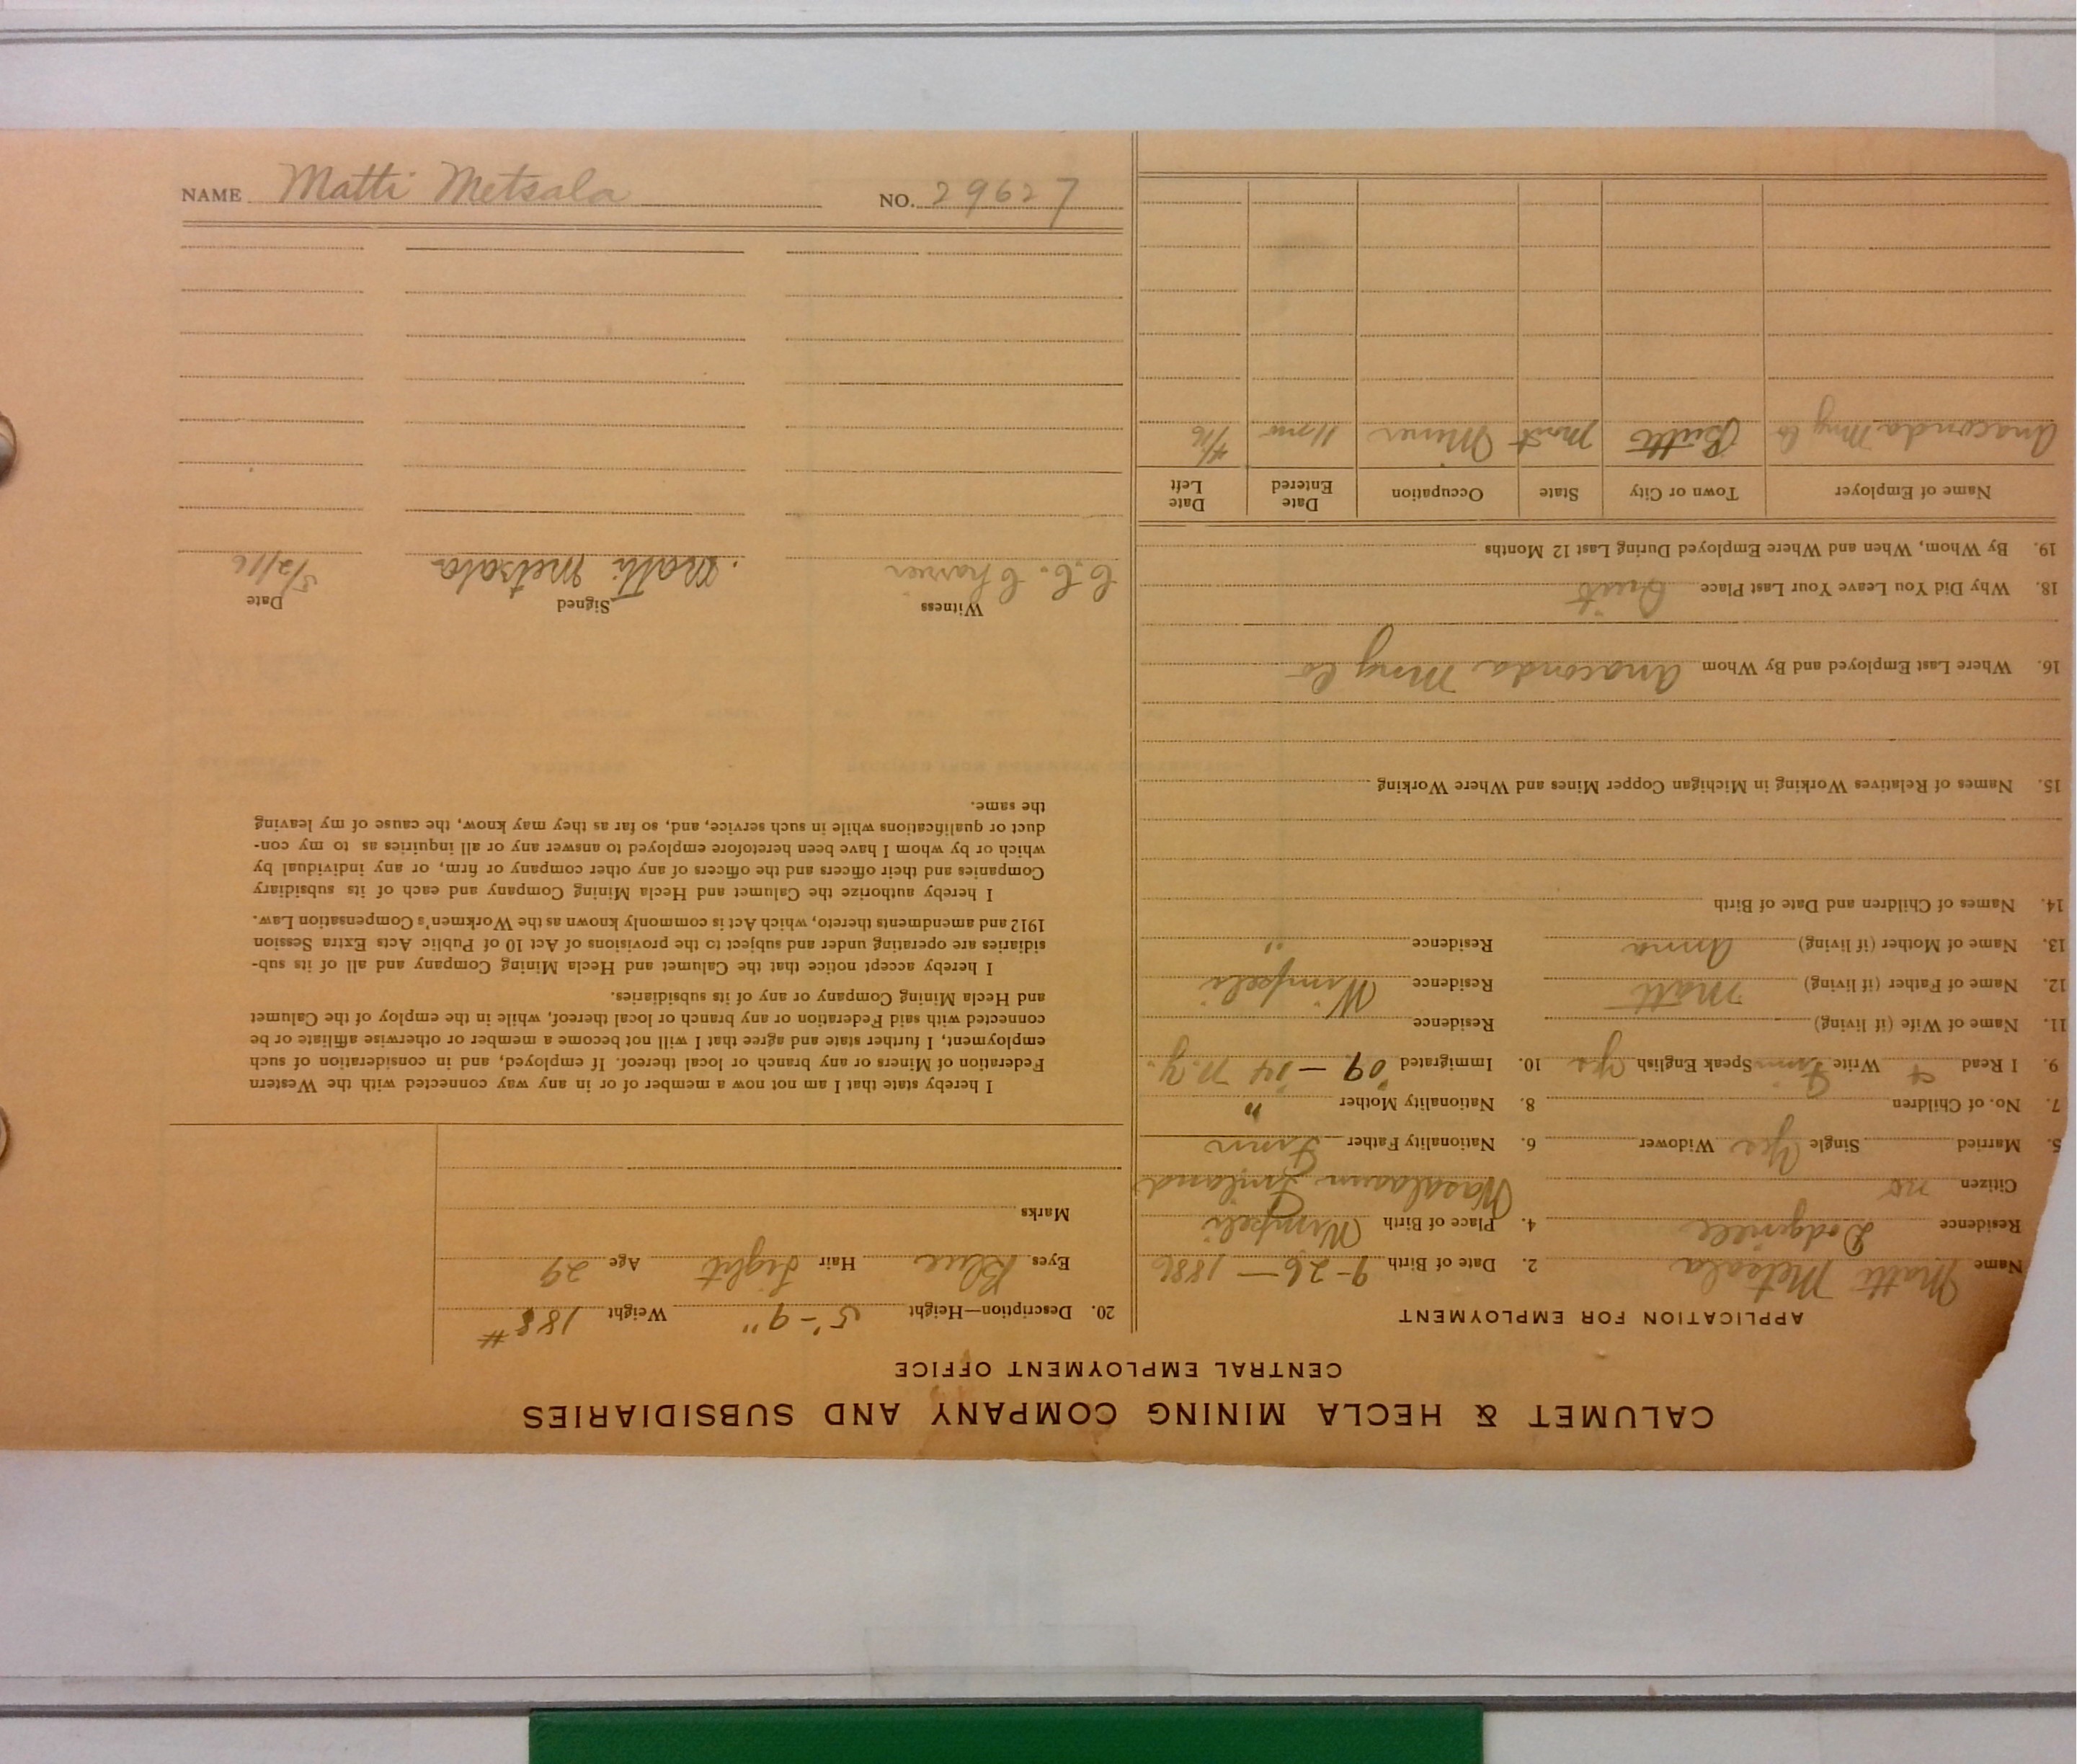 CALUMET & HECLA MINING COMPANY AND SUBSIDIARIES
CENTRAL EMPLOYMENT OFFICE
APPLICATION FOR EMPLOYMENT
Name Matti Metsala 2. Date of Birth 9-26-1886
Residence 4. Place of Birth Wimpeli
Citizen no Wasalaann Finland
5. Married Single Yes Widower 6. Nationality Father Finn
7. No. of Children 8. Nationality Mother "
9. I Read & Write Finn Speak English yes 10. Immigrated 09 - 14 N.Y.
11. Name of Wife (if living) Residence
12. Name of Father (if living) Matt Residence Wimpeli
13. Name of Mother (if living) Anna Residence "
14. Names of Children and Date of Birth
15. Names of Relatives Working in Michigan Copper Mines and Where Working
16. Where Last Employed and By Whom Anaconda Mng Co
18. Why Did You Leave Your Last Place Quit
19. By Whom, When and Where Employed During Last 12 Months
Name of Employer Town or City State Occupation Date Entered Date Left
Anaconda Mng Co Butte Mont Miner 4/16
20. Description—Height 5'-9" Weight 188 #
Eyes Blue Hair Light Age 29
Marks
I hereby state that I am not now a member of or in any way connected with the Western
Federation of Miners or any branch or local thereof. If employed, and in consideration of such
employment, I further state and agree that I will not become a member or otherwise affiliate or be
connected with said Federation or any branch or local thereof, while in the employ of the Calumet
and Hecla Mining Company or any of its subsidiaries.
I hereby accept notice that the Calumet and Hecla Mining Company and all of its sub-
sidiaries are operating under and subject to the provisions of Act 10 of Public Acts Extra Session
1912 and amendments thereto, which Act is commonly known as the Workmen's Compensation Law.
I hereby authorize the Calumet and Hecla Mining Company and each of its subsidiary
Companies and their officers and the officers of any other company or firm, or any individual by
which or by whom I have been heretofore employed to answer any or all inquiries as to my con-
duct or qualifications while in such service, and, so far as they may know, the cause of my leaving
the same.
Witness Signed Date
C.C. Charrier Matti Metsala 5/2/16
NAME Matti Metsala NO. 29627